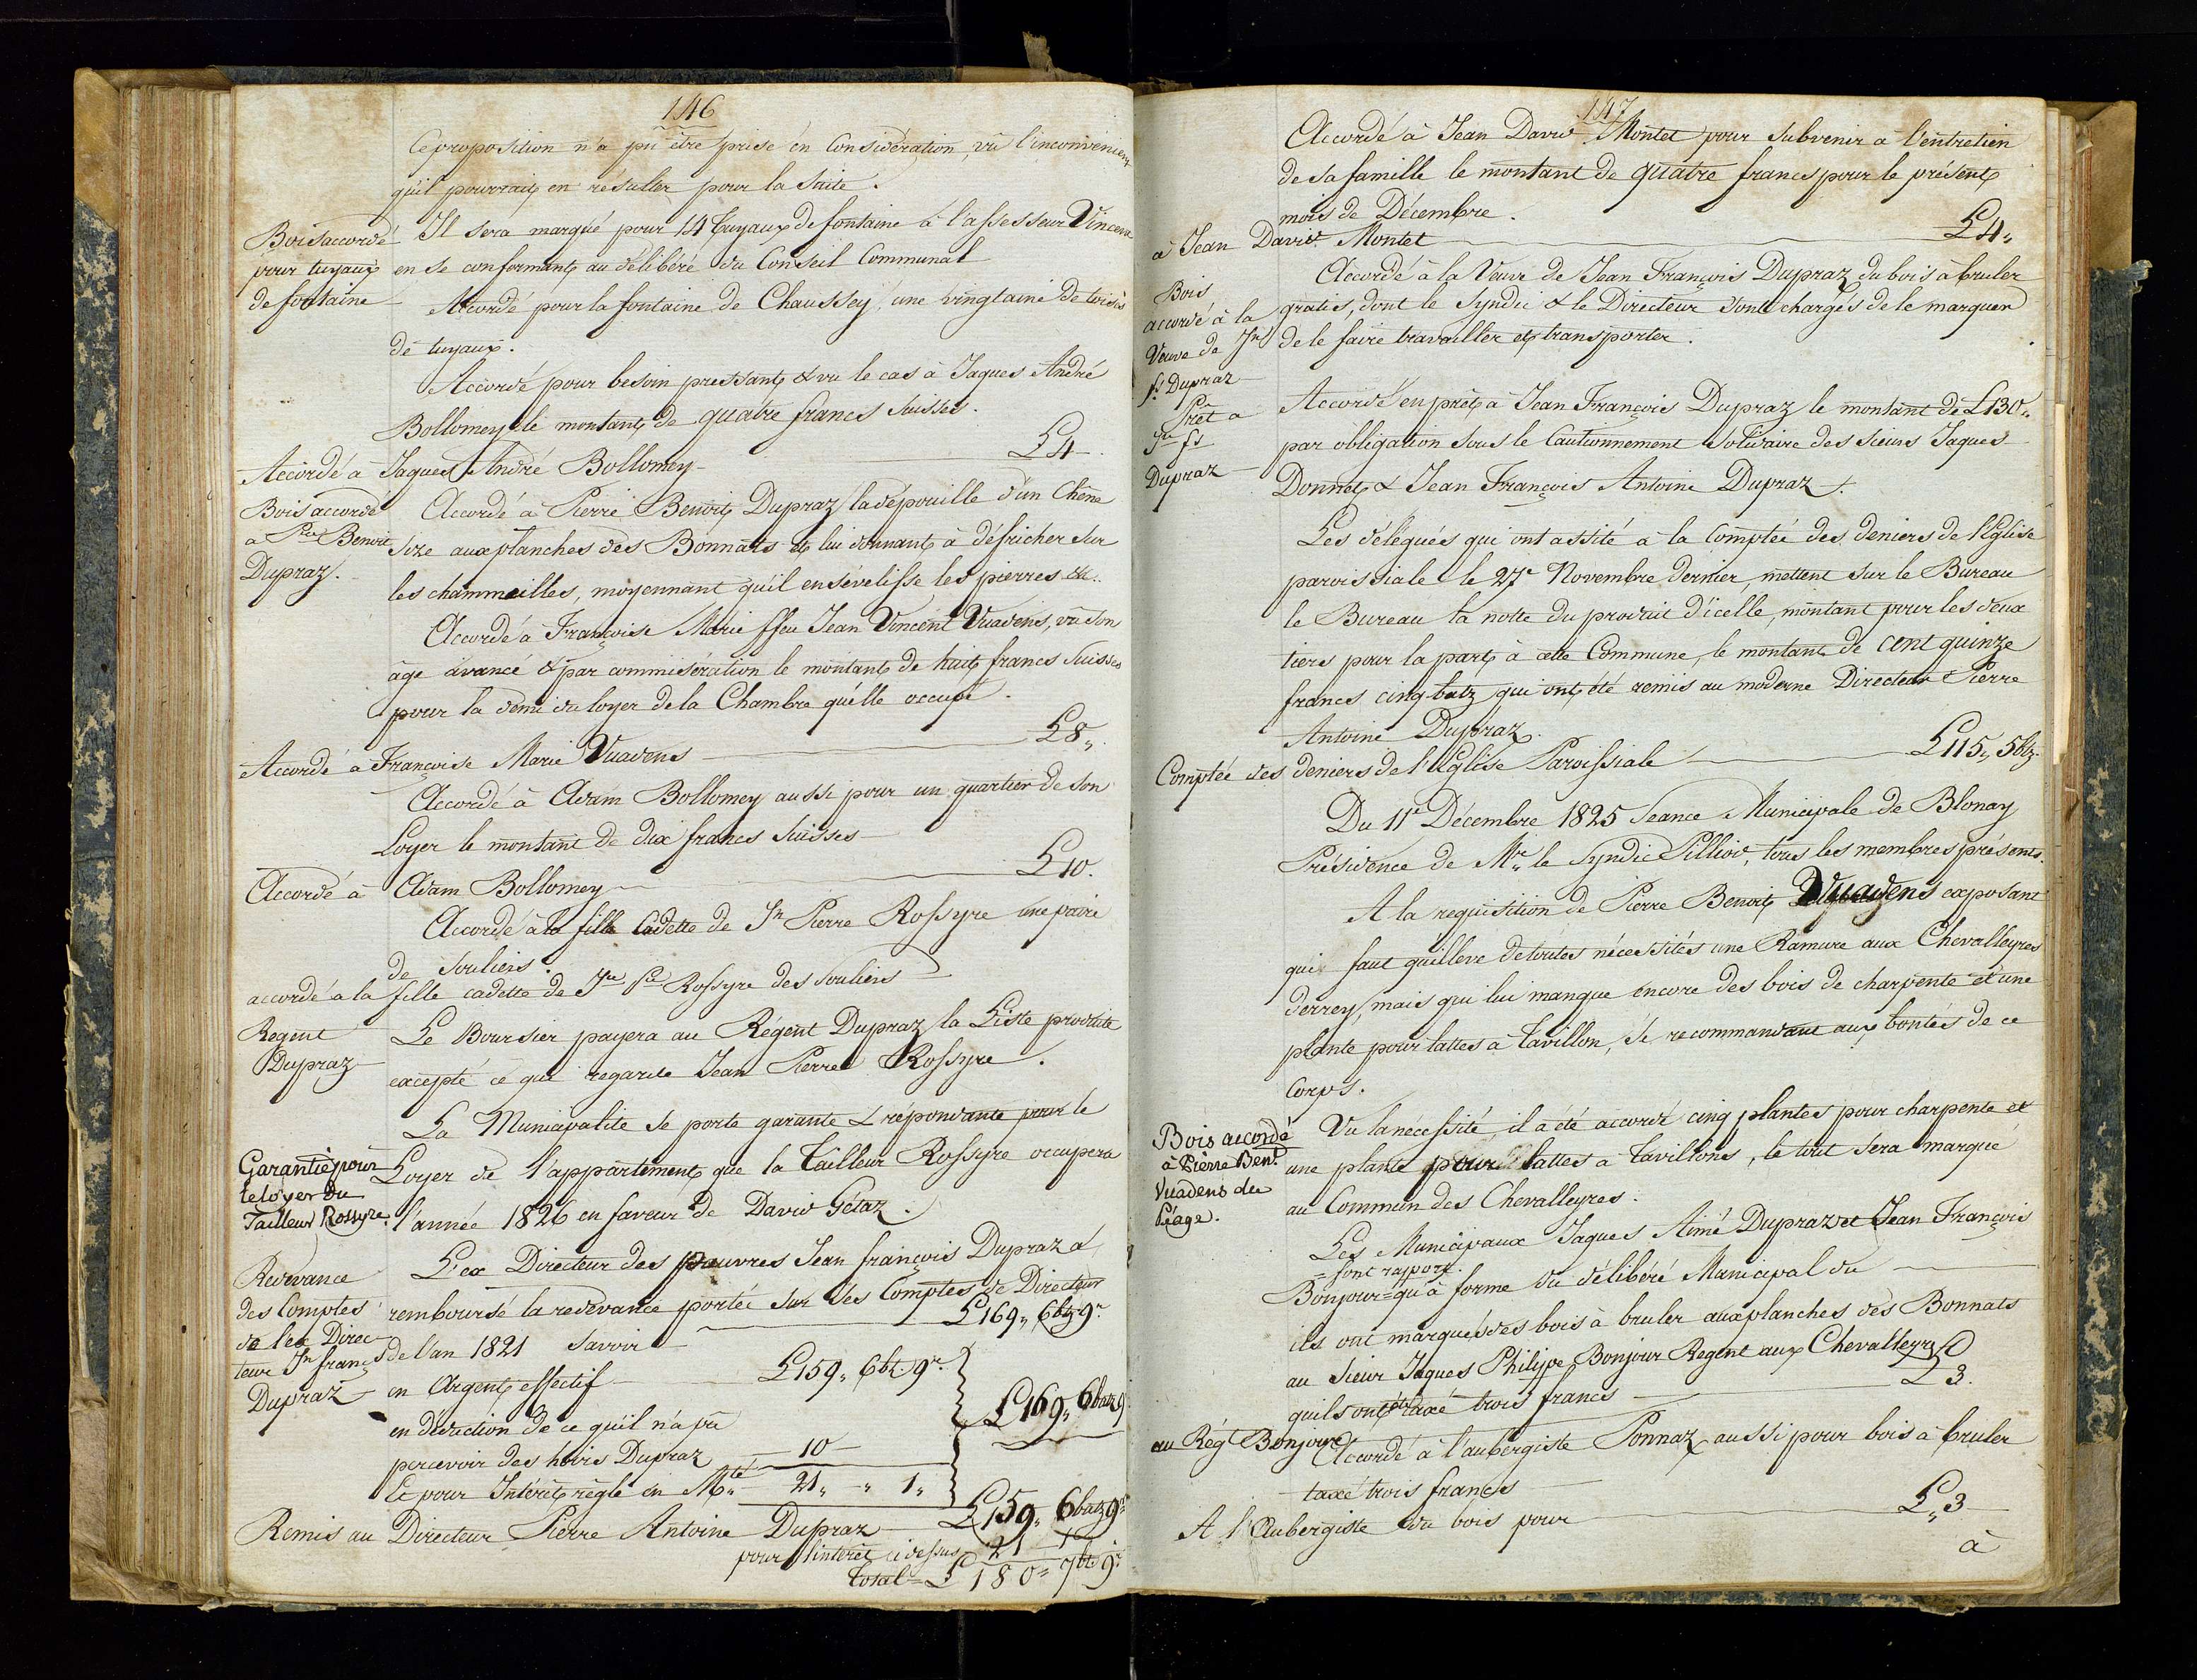 146
Ce proposition n'a pu être prise en Considération, vu l'inconvénient
qu'il pourrait en résulter pour la suite.
Bois accordé
pour tuyaux
de fontaine
Il sera marqué pour 14 tuyaux de fontaine à l'assesseur Vincent
en se conformant au délibéré du Conseil Communal
Accordé pour la fontaine de Chaussey une vingtaine de toises
de tuyaux.
Accordé pour besoin pressant & vu le cas à Jaques André
Bollomey le montant de quatre francs suisses.
Accordé à Jaques André Bollomey £4
Bois accordé
à Pre Benoit
Dupraz.
Accordé à Pierre Benoit Dupraz la dépouille d'un Chêne
size aux planches des Bonnats & lui donnant à défricher sur
les chammeilles, moyennant qu'il ensévelisse les pierres &c.
Accordé à Françoise Marie ffeu Jean Vincent Vuadens, vu son
âge avancé & par commisération le montant de huit francs Suisses
pour la demi du loyer de la Chambre qu'elle occupe.
Accordé à Françoise Marie Vuadens £8,,
Accordé à Adam Bollomey aussi pour un quartier de son
Loyer le montant de dix francs Suisses
Accordé à Adam Bollomey £10.
Accordé à la fille Cadette de Jn Pierre Rossyre une paire
de souliers.
accordé à la fille cadette de Jn Pre Rossyre des souliers
Regent
Dupraz
Le Boursier payera au Régent Dupraz la Liste produite
excepté ce qui regarde Jean Pierre Rossyre.
Garantie pour
le loyer du
Tailleur Rossyre.
La Municipalite se porte garante & répondante pour le
Loyer de l'appartement que la Tailleur Rossyre occupera
l'année 1826 en faveur de David Gétaz.
Redevance
des Comptes
de l'ex Direc-
teur Jn franç
Dupraz
L'ex Directeur des pauvres Jean françois Dupraz a
remboursé la redevance portée sur ses Comptes de Directeur
de l'an 1821 Savoir £169,, 6btz 9r.
en Argent effectif £159,, 6bt 9r.
en déduction de ce qu'il n'a pu
percevoir des hoirs Dupraz 10
£169,, 6batz 9
Et pour Intérêt règlé en Mté 21,, " 1,,
Remis au Directeur Pierre Antoine Dupraz £159,, 6batz 9r
pour l'interêt ci dessus 21 1
Total = £180,, 7bt 9r
147
Accordé à Jean David Montet pour subvenir à l'entretien
de sa famille le montant de quatre francs pour le présent
mois de Décembre.
à Jean David Montet £4,,
Bois
accordé à la
Veuve de Jn
fs Dupraz
Accordé à la Veuve de Jean François Dupraz du bois à bruler
gratis, dont le Syndic & le Directeur sont chargés de le marquer
de le faire travailler & transporter.
Prêt à
Jn fs
Dupraz
Accordé en prêt à Jean François Dupraz le montant de £130,,
par obligation sous le Cautionnement Solidaire des sieurs Jaques
Donnet & Jean François Antoine Dupraz.
Les délégués qui ont assité à la Comptée des deniers de l'Eglise
paroissiale le 27e Novembre dernier, mettent sur le Bureau
le Bureau la notte du produit d'icelle, montant pour les deux
tiers pour la part à cette Commune, le montant de cent quinze
francs cinq batz qui ont été remis au moderne Directeur Pierre
Antoine Dupraz.
Comptée des deniers de l'Eglise Paroissiale £115,, 5btz.
Du 11e Décembre 1825 Seance Municipale de Blonay
Présidence de Mr le Syndic Pilliod, tous les membres présents.
A la requisition de Pierre Benoit Vuadens exposant
qui faut qu'illeve detoutes nécessités une Ramure aux Chevalleyres
derrey, mais qui lui manque encore des bois de charpente et une
plante pour lattes à tavillon, se recommandant aux bontés de ce
Corps.
Bois accordé
à Pierre Bent
Vuadens du
Péage.
Vu la necessité, il a été accordé cinq plantes pour charpente et
une plante pour lattes à tavillons, le tout sera marqué
au Commun des Chevalleyres.
Les Municipaux Jaques Aimé Dupraz et Jean François
= font rapport.
Bonjour = qu'à forme du délibéré Municipal du
ils ont marqué des bois à bruler aux planches des Bonnats
au sieur Jaques Philippe Bonjour Regent aux Chevalleyres
quils ont taxé trois francs £3.
au Régt Bonjour
Accordé à l'aubergiste Ponnaz aussi pour bois à bruler
taxé trois francs
A l'Aubergiste du bois pour £,,3
à